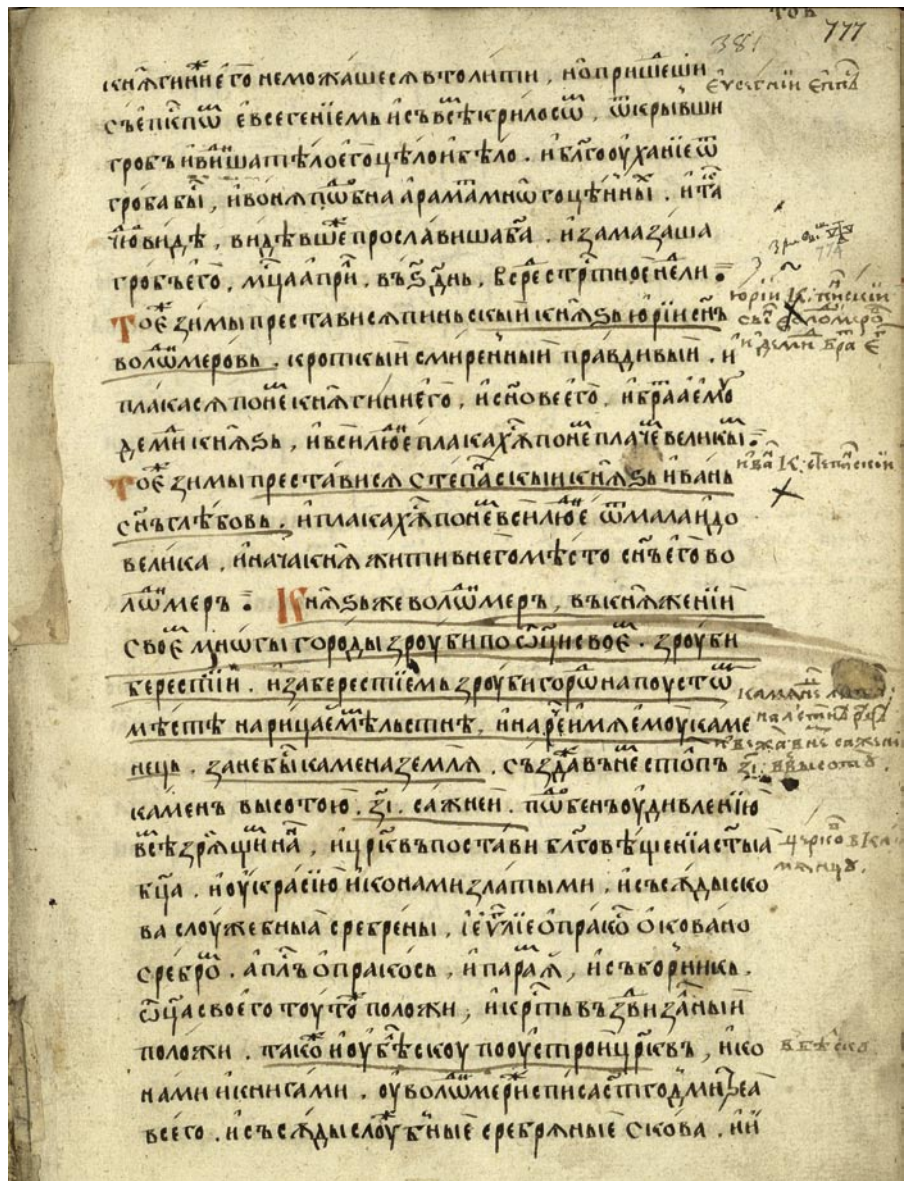 777
381
кнѧгини его неможашесѧ втолити, но пришеⷣши
съ епⷭкпоⷨ евсегенїемь и съ всѣⷨ крилосоⷨ, ѿкрывши
гробъ и видиша тѣло его цѣло и бѣло. и бл҃гооуханїе ѿ
гроба быⷭ, и вонѧ подобна араматамъ многоцѣнныⷯ. и та
чюⷣ видѣ, видѣвше прославиша б҃а. и замазаша
гробъ его, мцⷭа априⷧ. въ ѕ҃ днь, в среⷣ стрⷭтное неⷣли
Тоеⷤ зимы престависѧ пиньскыи кнѧзь юрїи сн҃ъ
володимеровь. кроткыи смиренныи правдивыи. и
плакасѧ по неⷨ кнѧгини его, и сн҃ове его, и браⷮ а емоу
демиⷣ кнѧзь, и вси людїе плакахⷹсѧ по неⷨ плачеⷨ великыⷨ
Тоеⷤ зимы престависѧ степаньскыи кнѧзь ивань
сн҃ъ глѣбовь. и плакахⷹсѧ по неⷨ вси людїе ѿ мала и до
велика. и нача кнѧжити в него мѣсто сн҃ъ его во
лодимеръ Кнѧзь же володимеръ, въ кнѧженїи
своеⷨ многы городы зроуби по ѿци своеⷨ. зроуби
берестїи. и за берестїемь зроуби гороⷣ на поустоⷨ
мѣстѣ нарицаемѣⷨ льстнѣ. и нареⷱ имѧ емоу каме
нець. зане быⷭ камена землѧ. създа въ неⷨ столпъ
каменъ высотою. з҃і. саженеи. подобенъ оудивленїю
всѣⷨ зрѧщиⷨ на нь, и црк҃въ постави бл҃говѣщенїа ст҃ыа
бц҃а. и оукраси ю иконами златыми, и съсѫды ско
ва слоужебныа сребрены, і еѵⷢ҇лїе опракоⷭ оковано
сребромъ. апⷭлъ опракось, и параⷨѧ, и съборникь.
ѿца своего тоу тоⷤ положи, и крⷭть въздвизалныи
положи. такоⷤ и оу бѣлскоу пооустрои црк҃въ, ико
нами и книгами. оу володимери списа ст҃го дмитрѣа
всего. и съсѫды слоужебные серебрѧные скова. и и
юрїи К: пинскїи
црков в Ка
мянцу.
в бѣлско